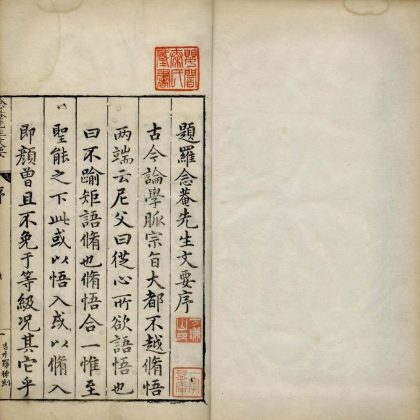 題羅念菴先生文要序
古今論學脈宗旨大都不越脩悟
两端云尼父曰從心所欲語悟也
曰不踰矩語脩也脩悟合一惟至
聖能之下此或以悟入或以脩入
即顏曾且不免于等級況其它乎
序